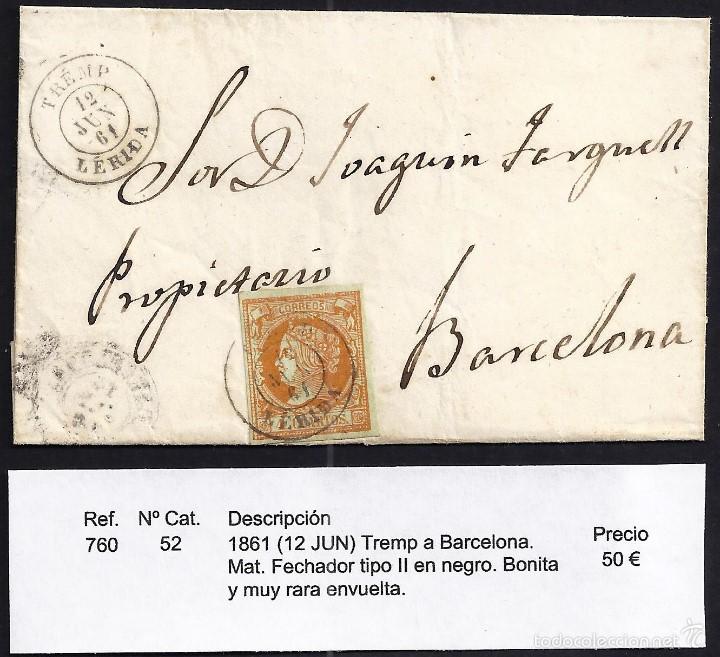 TRÉMP
12
JUN
61
LÉRIDA
Sor D Joaquin Farguell
Propietario
Barcelona
CORREOS
61
LÉRIDA
Ref. Nº Cat. Descripción Precio
760 52 1861 (12 JUN) Tremp a Barcelona. 50 €
Mat. Fechador tipo II en negro. Bonita
y muy rara envuelta.
todocoleccion.net